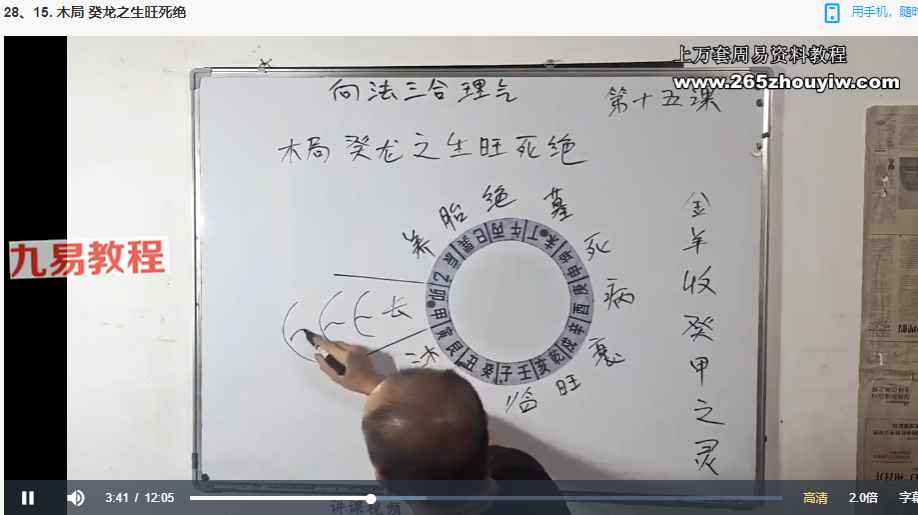 28、15. 木局 癸龙之生旺死绝
用手机，随时
上万套周易资料教程
www.265zhouyiw.com
向法三合理气
第十五课
木局 癸龙之生旺死绝
九易教程
养 胎 绝 墓 死 病 衰 旺 临 沐 长
乙 辰 巽 巳 丙 午 丁 未 坤 申 庚 酉 辛 戌 乾 亥 壬 子 癸 丑 艮 寅 甲 卯
金羊收癸甲之灵
讲课视频
3:41 / 12:05
高清
2.0倍
字幕